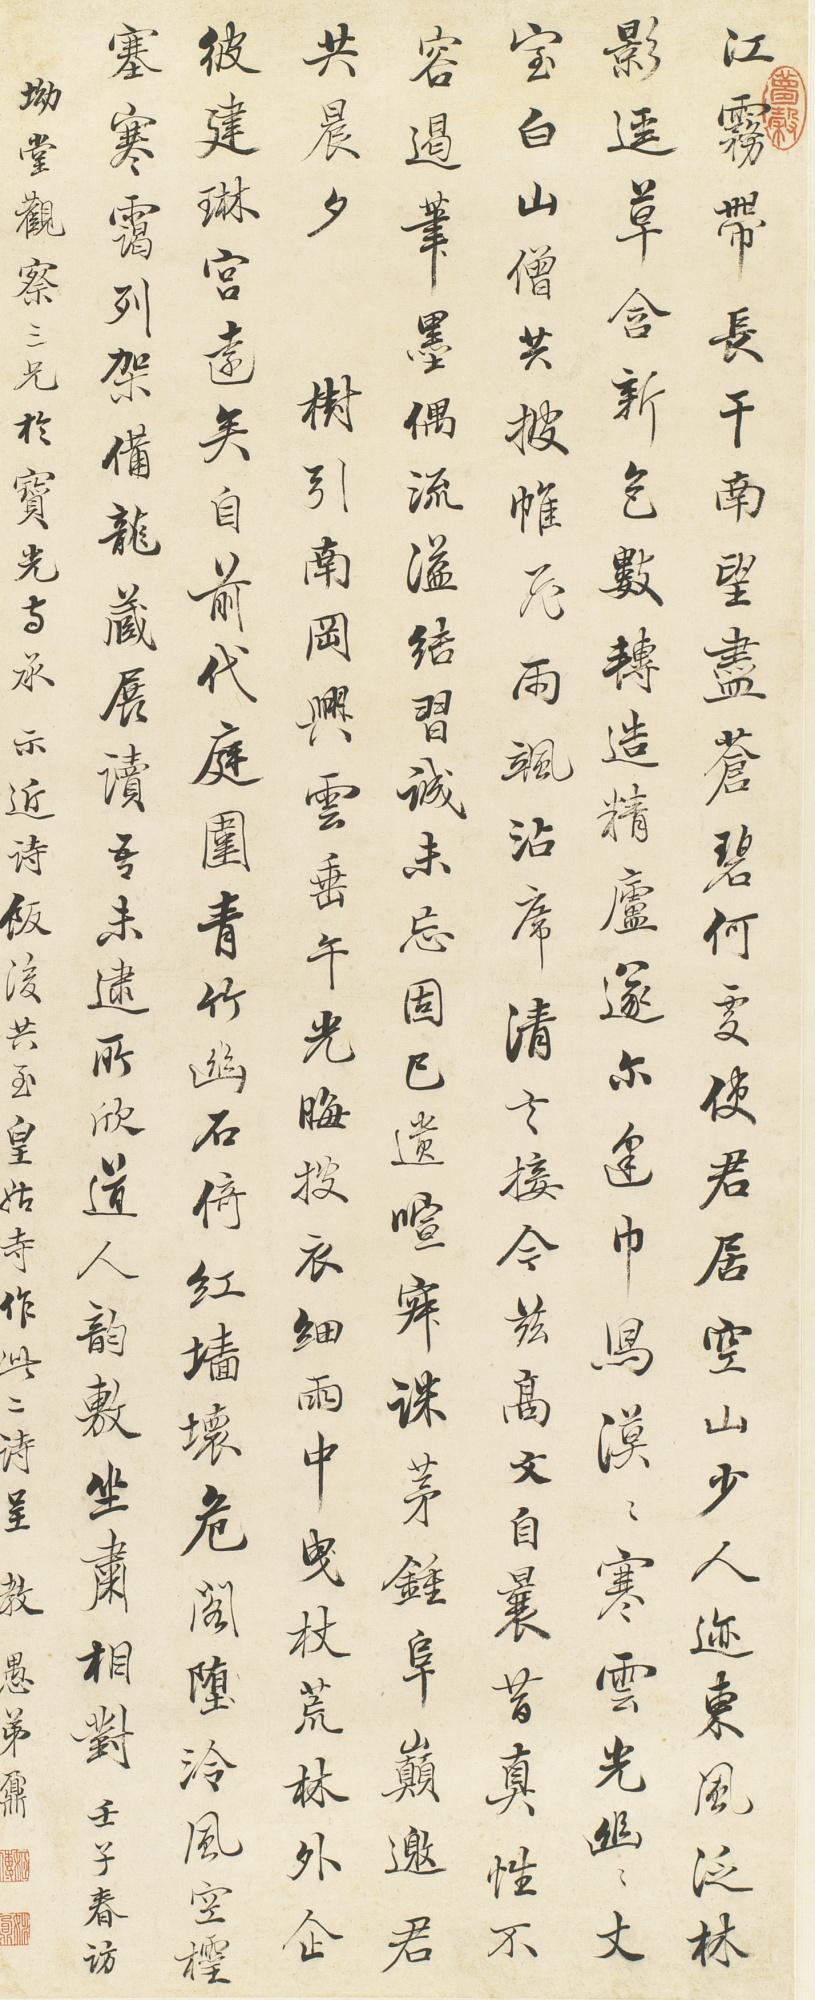 江霧帶長干南望盡蒼碧何處使君居空山少人迹東風泛林
影逕草含新色數轉造精廬遂爾逢巾舄漠〻寒雲光幽〻丈
室白山僧共披帷花雨颯沾席清言接令茲高文自曩昔真性不
容遏筆墨偶流溢結習誠未忘固已遺喧寂誅茅鍾阜巔邀君
共晨夕 樹引南岡興雲垂午光晦披衣細雨中曳杖荒林外企
彼建琳宮遠矣自前代庭圍青竹幽石倚紅墻壞危閣墮泠風空櫺
塞寒靄列架備龍藏展讀吾未逮所欣道人韵敷坐肅相對 壬子春訪
坳堂觀察三兄於寶光寺承 示近詩飯後共至皇姑寺作此二詩呈 教 愚弟鼐